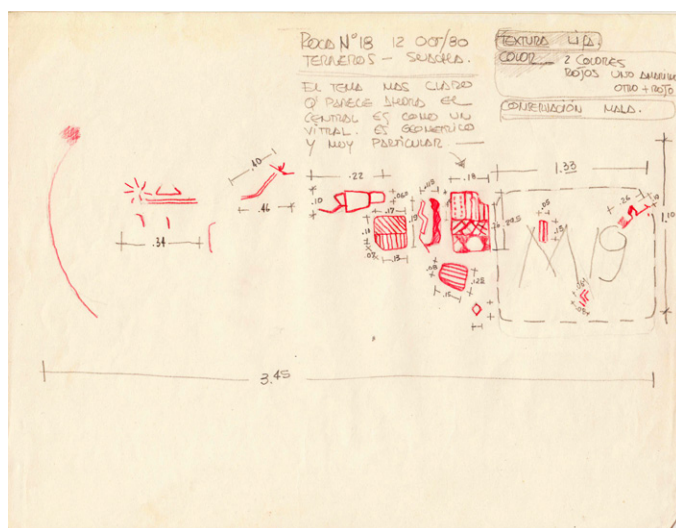 ROCA Nº 18 12 OCT/80
TERREROS - SOACHA.
EL TEMA MAS CLARO
Q' PARECE AHORA EL
CENTRAL ES COMO UN
VITRAL. ES GEOMETRICO
Y MUY PARTICULAR.
TEXTURA LISA.
COLOR 2 COLORES
ROJOS UNO AMARILLO
OTRO + ROJO
CONSERVACIÓN MALA.
.40
.46
.34
.22
.10
.17
.11
.07
.13
.18
1.33
.26
1.10
3.45